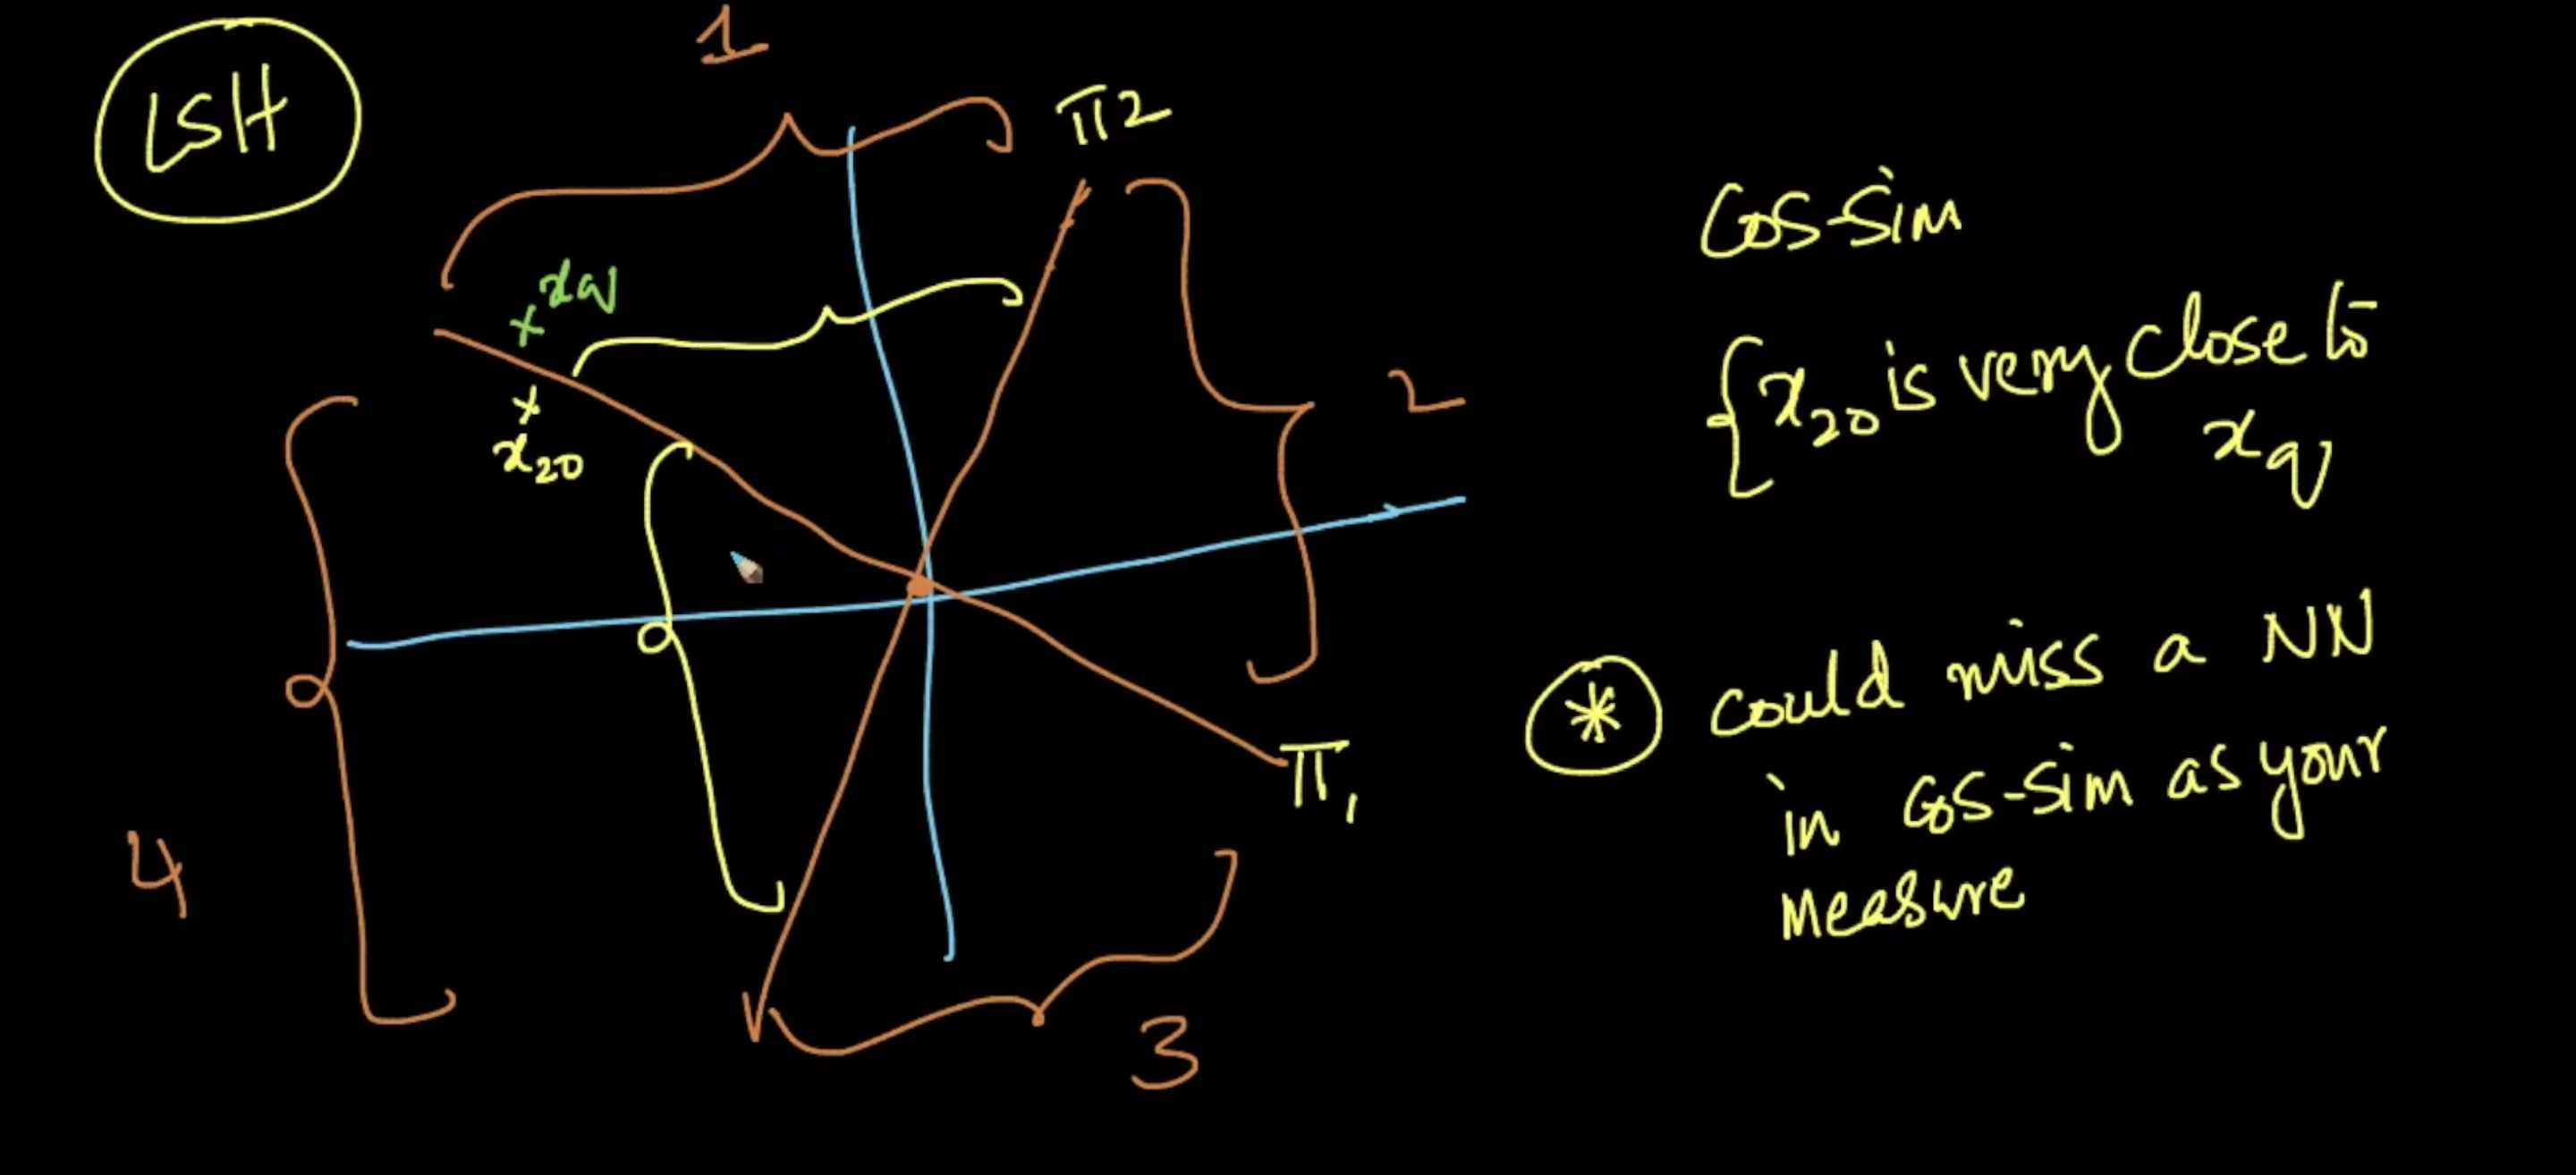 LSH
1
π2
xq
x20
2
π1
4
3
Cos-Sim
x20 is very close to
xq
* could miss a NN
in Cos-Sim as your
Measure